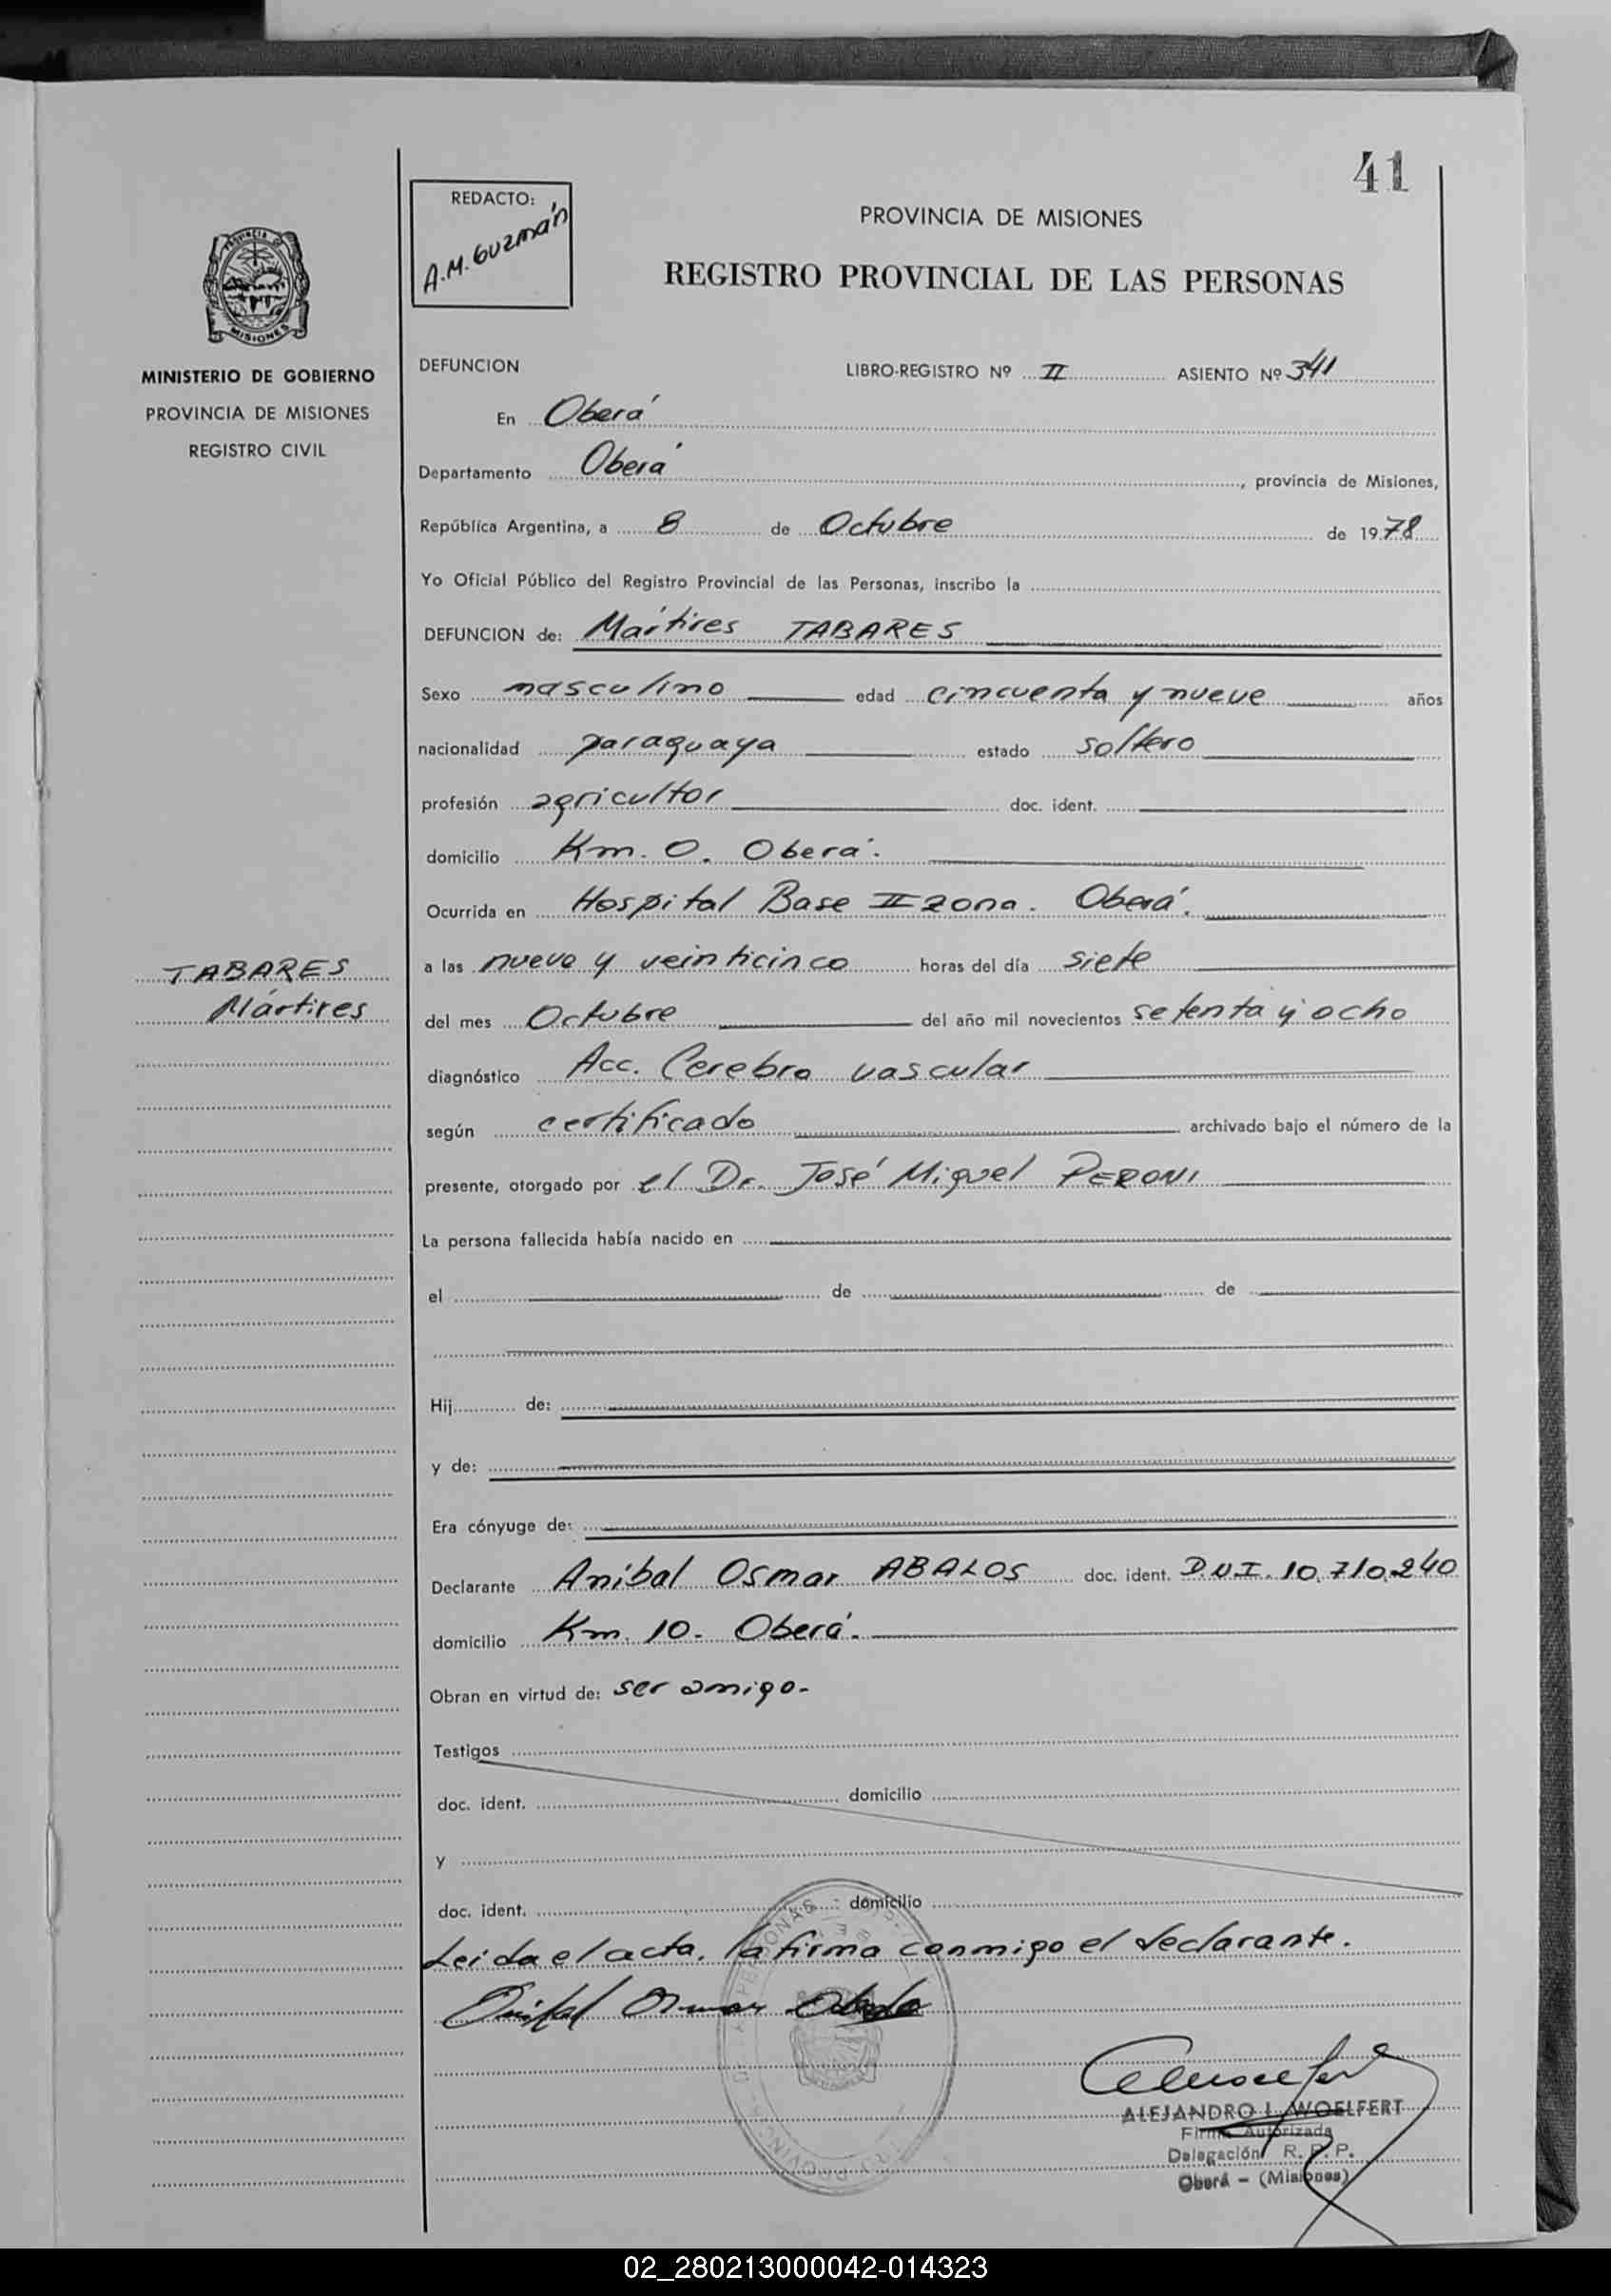 41
REDACTO:
A.M. GUZMÁN
PROVINCIA DE MISIONES
REGISTRO PROVINCIAL DE LAS PERSONAS
PROVINCIA DE
MISIONES
MINISTERIO DE GOBIERNO
PROVINCIA DE MISIONES
REGISTRO CIVIL
DEFUNCION LIBRO-REGISTRO Nº II ASIENTO Nº 341
En Oberá
Departamento Oberá, provincia de Misiones,
República Argentina, a 8 de Octubre de 1978
Yo Oficial Público del Registro Provincial de las Personas, inscribo la
DEFUNCION de: Mártires TABARES
Sexo masculino edad cincuenta y nueve años
nacionalidad paraguaya estado soltero
profesión agricultor doc. ident.
domicilio Km. 0. Oberá.
Ocurrida en Hospital Base II zona. Oberá.
TABARES
Mártires
a las nueve y veinticinco horas del día siete
del mes Octubre del año mil novecientos setenta y ocho
diagnóstico Acc. Cerebro vascular
según certificado archivado bajo el número de la
presente, otorgado por el Dr. José Miguel PERONI
La persona fallecida había nacido en
el de de
Hij de:
y de:
Era cónyuge de:
Declarante Anibal Osmar ABALOS doc. ident. D.N.I. 10.710.240
domicilio Km. 10. Oberá.
Obran en virtud de: ser amigo.
Testigos
doc. ident. domicilio
y
doc. ident. domicilio
Leida el acta, la firma conmigo el declarante.
ALEJANDRO L. WOELFERT
Firma Autorizada
Delegación R. P. P.
Oberá - (Misiones)
02_280213000042-014323